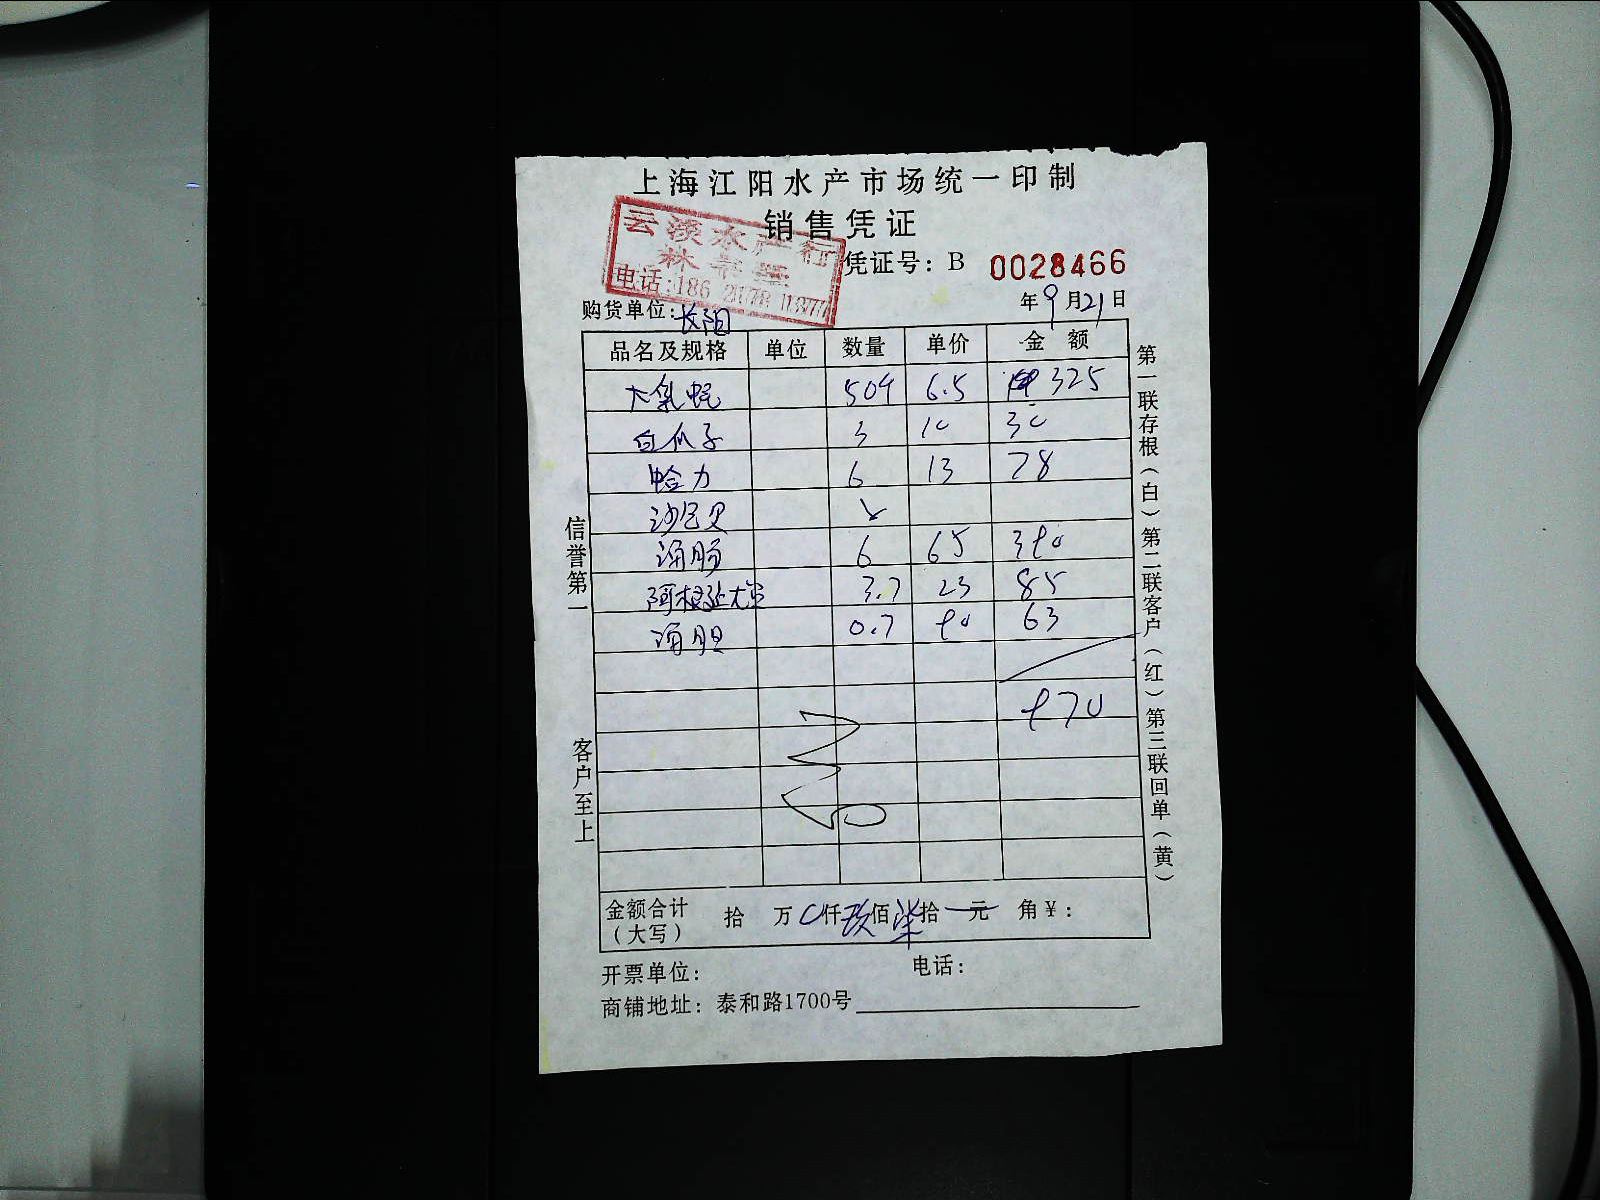 上海江阳水产市场统一印制
销售凭证
云淡水产行
电话:186
凭证号：B 0028466
购货单位：长阳
年9月21日
品名及规格 单位 数量 单价 金额
大氣蚝 50个 6.5 325
白瓜子 3 10 30
蛤力 6 13 78
沙尼贝
海肠 6 65 390
阿根廷大 3.7 23 85
海胆 0.7 90 63
970
金额合计（大写） 拾 万 0仟玖佰柒拾 元 角￥：
开票单位： 电话：
商铺地址：泰和路1700号
信誉第一 客户至上
第一联存根（白）第二联客户（红）第三联回单（黄）